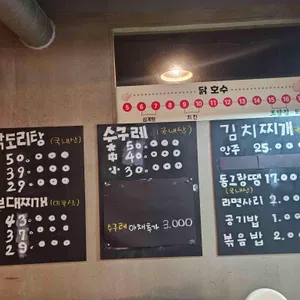 닭 호수
5 6 7 8 9 10 11 12 13 14 15 16
삼계탕
치킨
도리탕 (국내산)
50.000
39.000
29.000
대찌개
43.000
37.000
29.000
수구레 (국내산)
大 50.000
中 40.000
小 30.000
수구레 야채추가 3.000
김치찌개
안주 25.000
동그랑땡 17.00
(국내산)
라면사리 2.
공기밥 1.
볶음밥 2.